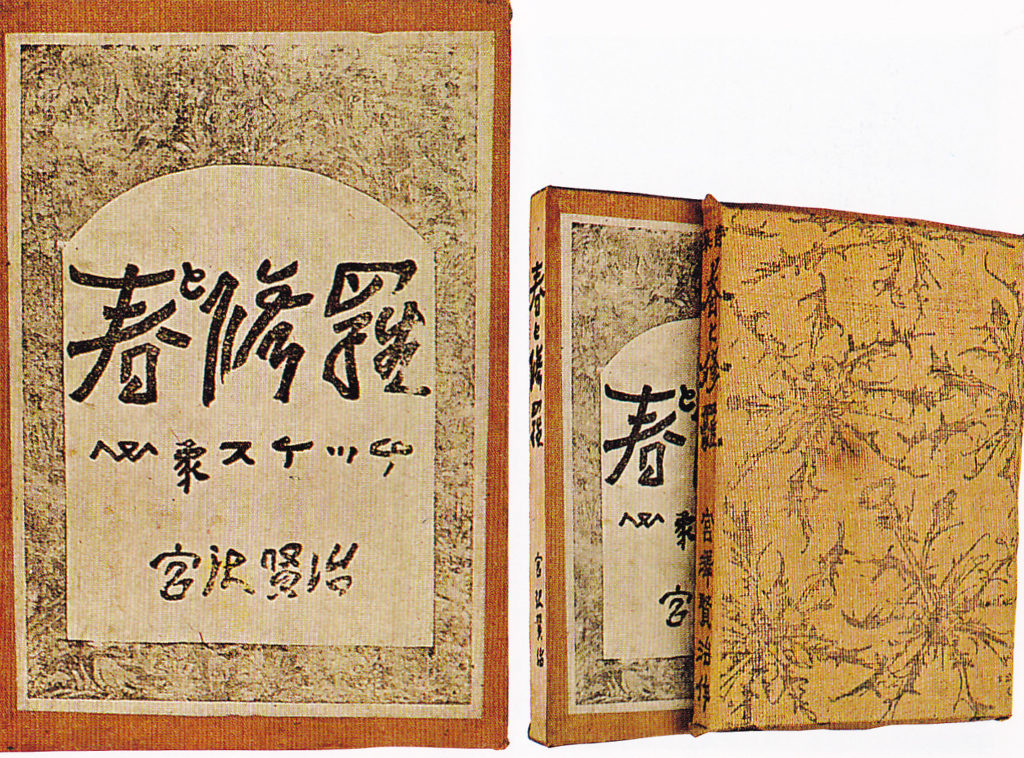 春と修羅
心象スケッチ
宮沢賢治
春と修羅
宮沢賢治
春と
心象
宮
春と修羅
宮澤賢治作